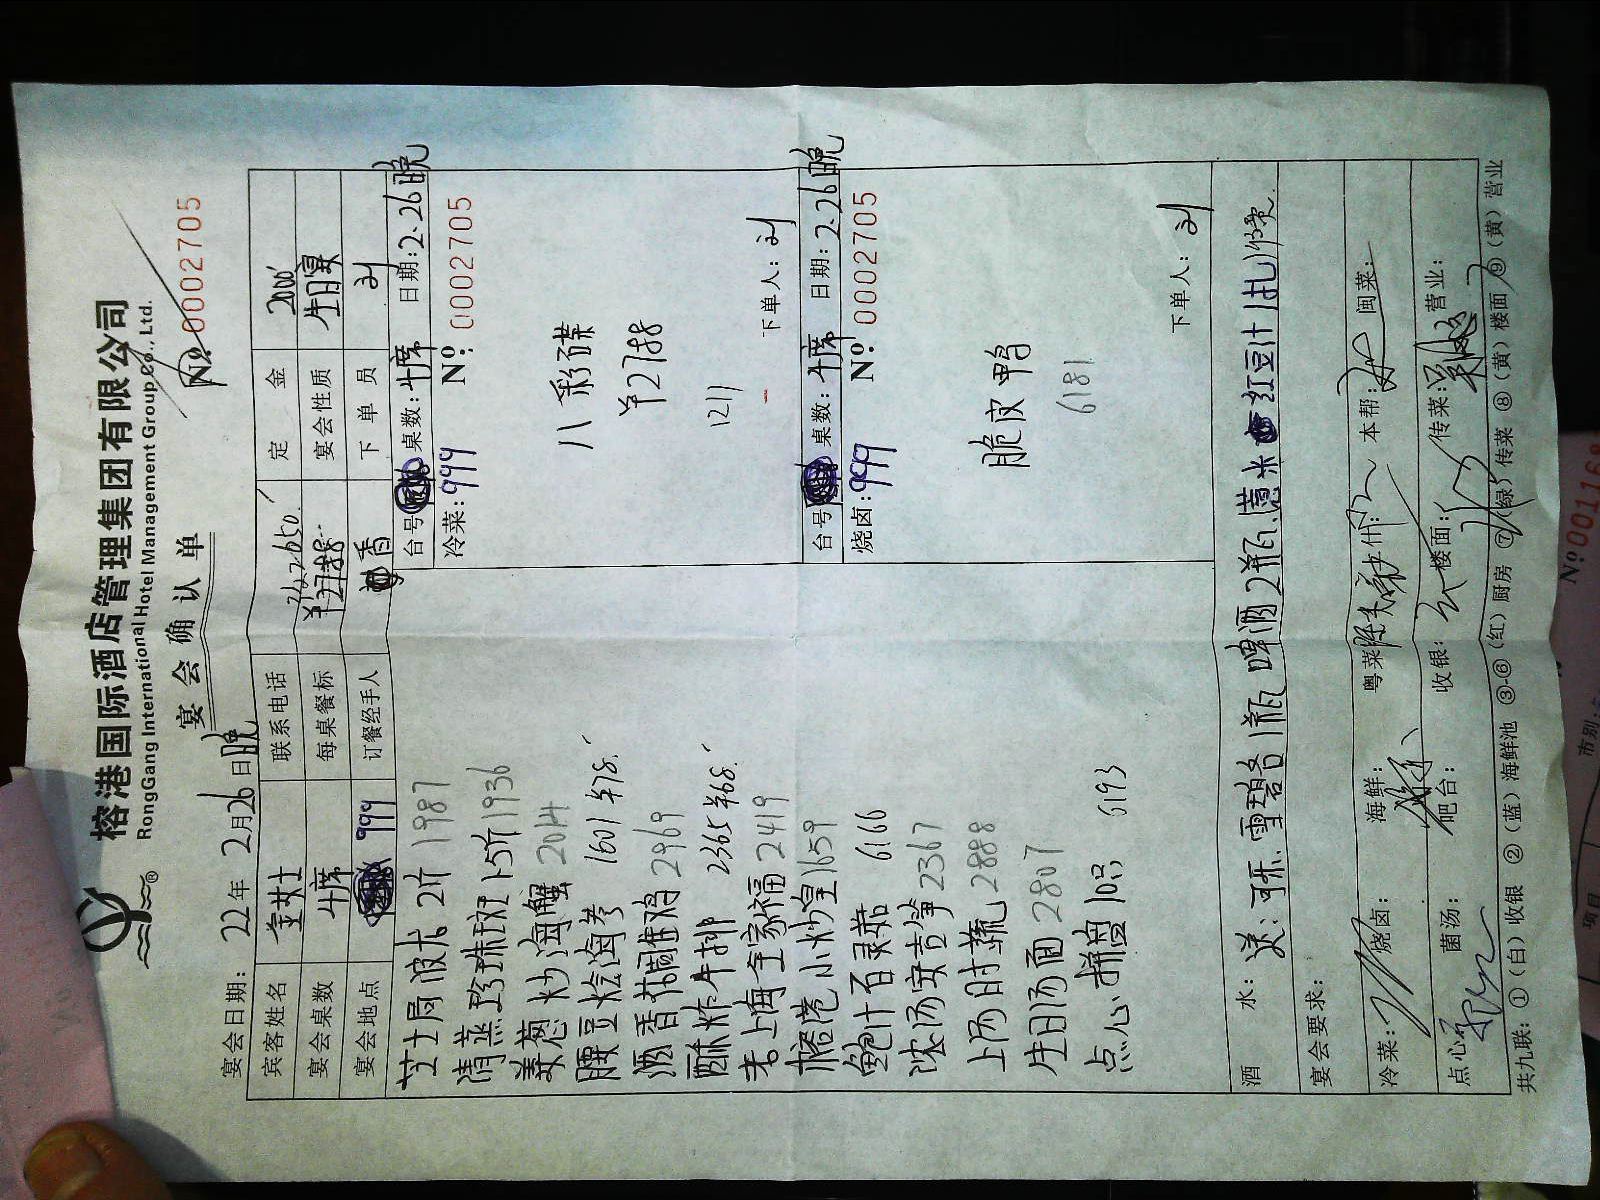 榕港国际酒店管理集团有限公司
RongGang International Hotel Management Group Co., Ltd.
宴会确认单
№ 0002705
宴会日期: 22年 2月26日晚
宾客姓名 金女士 联系电话 定金 2000
宴会桌数 1席 每桌餐标 ¥2788 宴会性质 生日宴
宴会地点 999 订餐经手人 香 下单员 刘
芝士焗波龙 2斤 1987
清蒸珍珠斑 1.5斤 1936
姜葱炒海蟹 2014
腰豆烩海参 1601 ¥78
酒香葱焗雅鸡 2969
酥炸牛排 2365 ¥68
老上海全家福 2419
榕港小炒皇 1659
鲍汁百灵菇 6166
浓汤安吉笋 2367
上汤时蔬 2888
生日汤面 2807
点心拼盘 10只 6193
台号: 桌数: 1席 日期: 2-26晚
冷菜: 999 №: 0002705
八彩碟
¥2788
1211
下单人: 刘
台号: 桌数: 1席 日期: 2-26晚
烧卤: 999 №: 0002705
脆皮鸭
6181
下单人: 刘
酒水: 送: 可乐、雪碧各1瓶 啤酒2瓶 薏米 红豆汁1扎
宴会要求:
冷菜: 烧卤: 海鲜: 粤菜: 什: 本帮: 闽菜:
点心: 菌汤: 吧台: 收银: 楼面: 传菜: 营业:
共九联: ①(白)收银 ②(蓝)海鲜池 ③-⑥(红)厨房 ⑦(绿)传菜 ⑧(黄)楼面 ⑨(黄)营业
№001168
市别:
项目